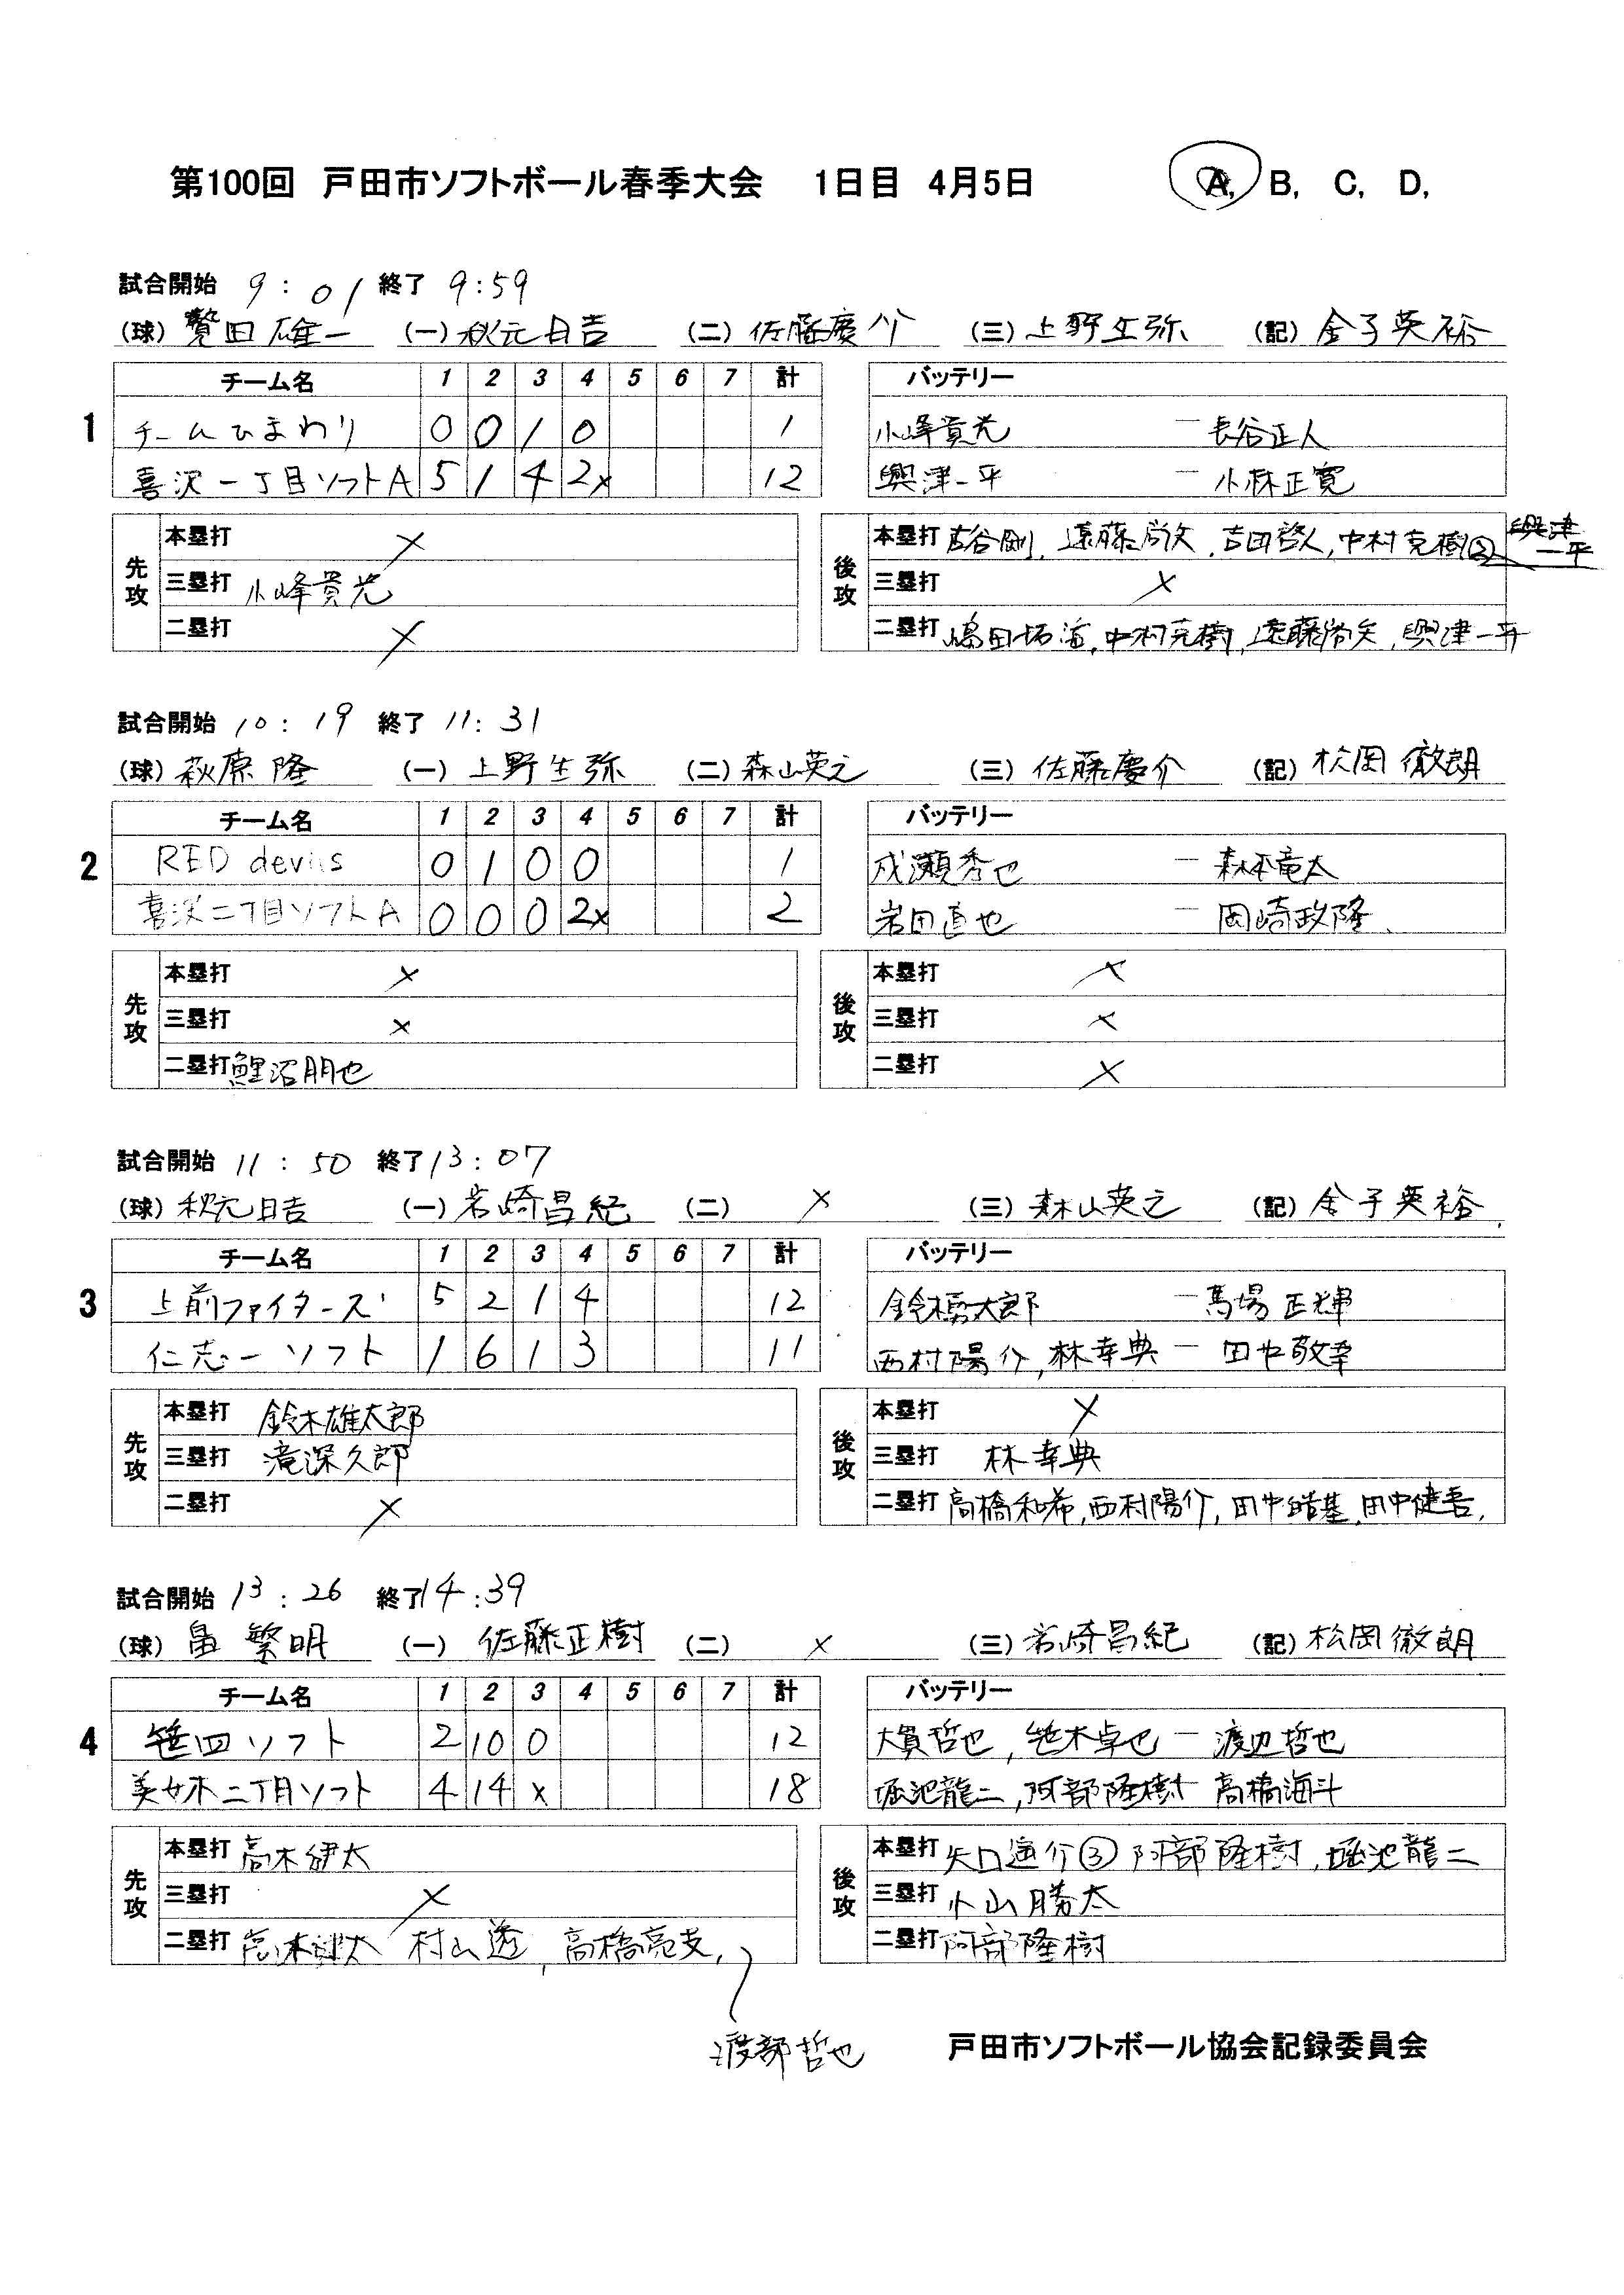 第100回 戸田市ソフトボール春季大会 1日目 4月5日 A, B, C, D,
試合開始 9:01 終了 9:59
(球) 贄田雄一 (一) 秋元日吉 (二) 佐藤慶介 (三) 上野生弥 (記) 金子英裕
チーム名 1 2 3 4 5 6 7 計 バッテリー
1 チームひまわり 0 0 1 0 1 小峰貴光 ー 長谷正人
喜沢一丁目ソフトA 5 1 4 2x 12 興津一平 ー 小林正寛
先攻 本塁打 × 後攻 本塁打 古谷剛, 遠藤尚文, 吉田啓人, 中村克樹② 興津一平
三塁打 小峰貴光 三塁打 ×
二塁打 × 二塁打 嶋田拓海, 中村克樹, 遠藤尚矢, 興津一平
試合開始 10:19 終了 11:31
(球) 萩原隆 (一) 上野生弥 (二) 森山英之 (三) 佐藤慶介 (記) 松岡徹朗
チーム名 1 2 3 4 5 6 7 計 バッテリー
2 RED devils 0 1 0 0 1 成瀬秀也 ー 森本竜太
喜沢二丁目ソフトA 0 0 0 2x 2 岩田直也 ー 岡崎政隆
先攻 本塁打 × 後攻 本塁打 ×
三塁打 × 三塁打 ×
二塁打 鯉沼朋也 二塁打 ×
試合開始 11:50 終了 13:07
(球) 秋元日吉 (一) 岩崎昌紀 (二) × (三) 森山英之 (記) 金子英裕
チーム名 1 2 3 4 5 6 7 計 バッテリー
3 上前ファイターズ 5 2 1 4 12 鈴木勇太郎 ー 馬場正輝
仁志一ソフト 1 6 1 3 11 西村陽介, 林幸典 ー 田中敬幸
先攻 本塁打 鈴木雄太郎 後攻 本塁打 ×
三塁打 滝深久郎 三塁打 林幸典
二塁打 × 二塁打 高橋和希, 西村陽介, 田中皓基, 田中健吾,
試合開始 13:26 終了 14:39
(球) 畠繁明 (一) 佐藤正樹 (二) × (三) 岩崎昌紀 (記) 松岡徹朗
チーム名 1 2 3 4 5 6 7 計 バッテリー
4 笹四ソフト 2 10 0 12 大貫哲也, 笹木卓也 ー 渡辺哲也
美女木二丁目ソフト 4 14 x 18 堀池龍二, 阿部隆樹 ー 高橋海斗
先攻 本塁打 高木健太 後攻 本塁打 矢口遥介③ 阿部隆樹, 堀池龍二
三塁打 × 三塁打 小山勝太
二塁打 高木健太 村山透, 高橋亮支, 二塁打 阿部隆樹
渡部哲也 戸田市ソフトボール協会記録委員会